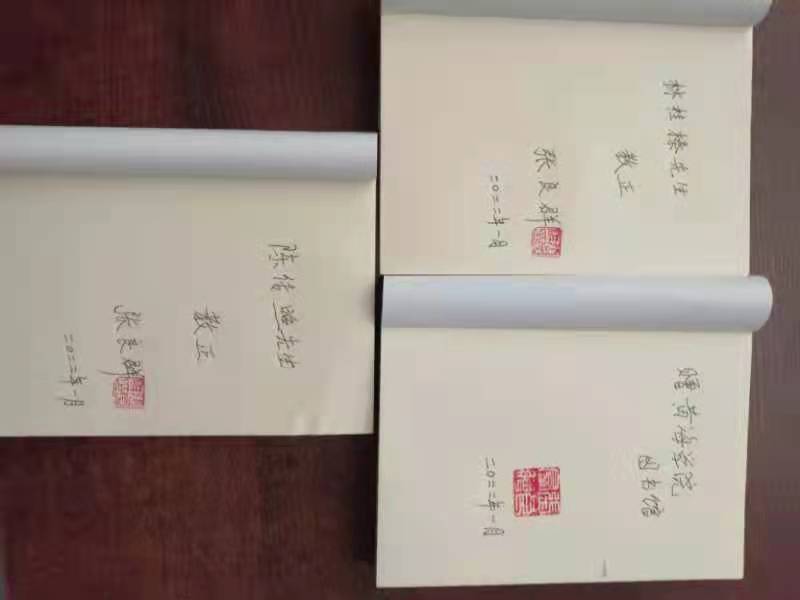 林桂榛先生
教正
张良群
二〇二二年一月
陈传照先生
教正
张良群
二〇二二年一月
赠黄海学院
图书馆
二〇二二年一月